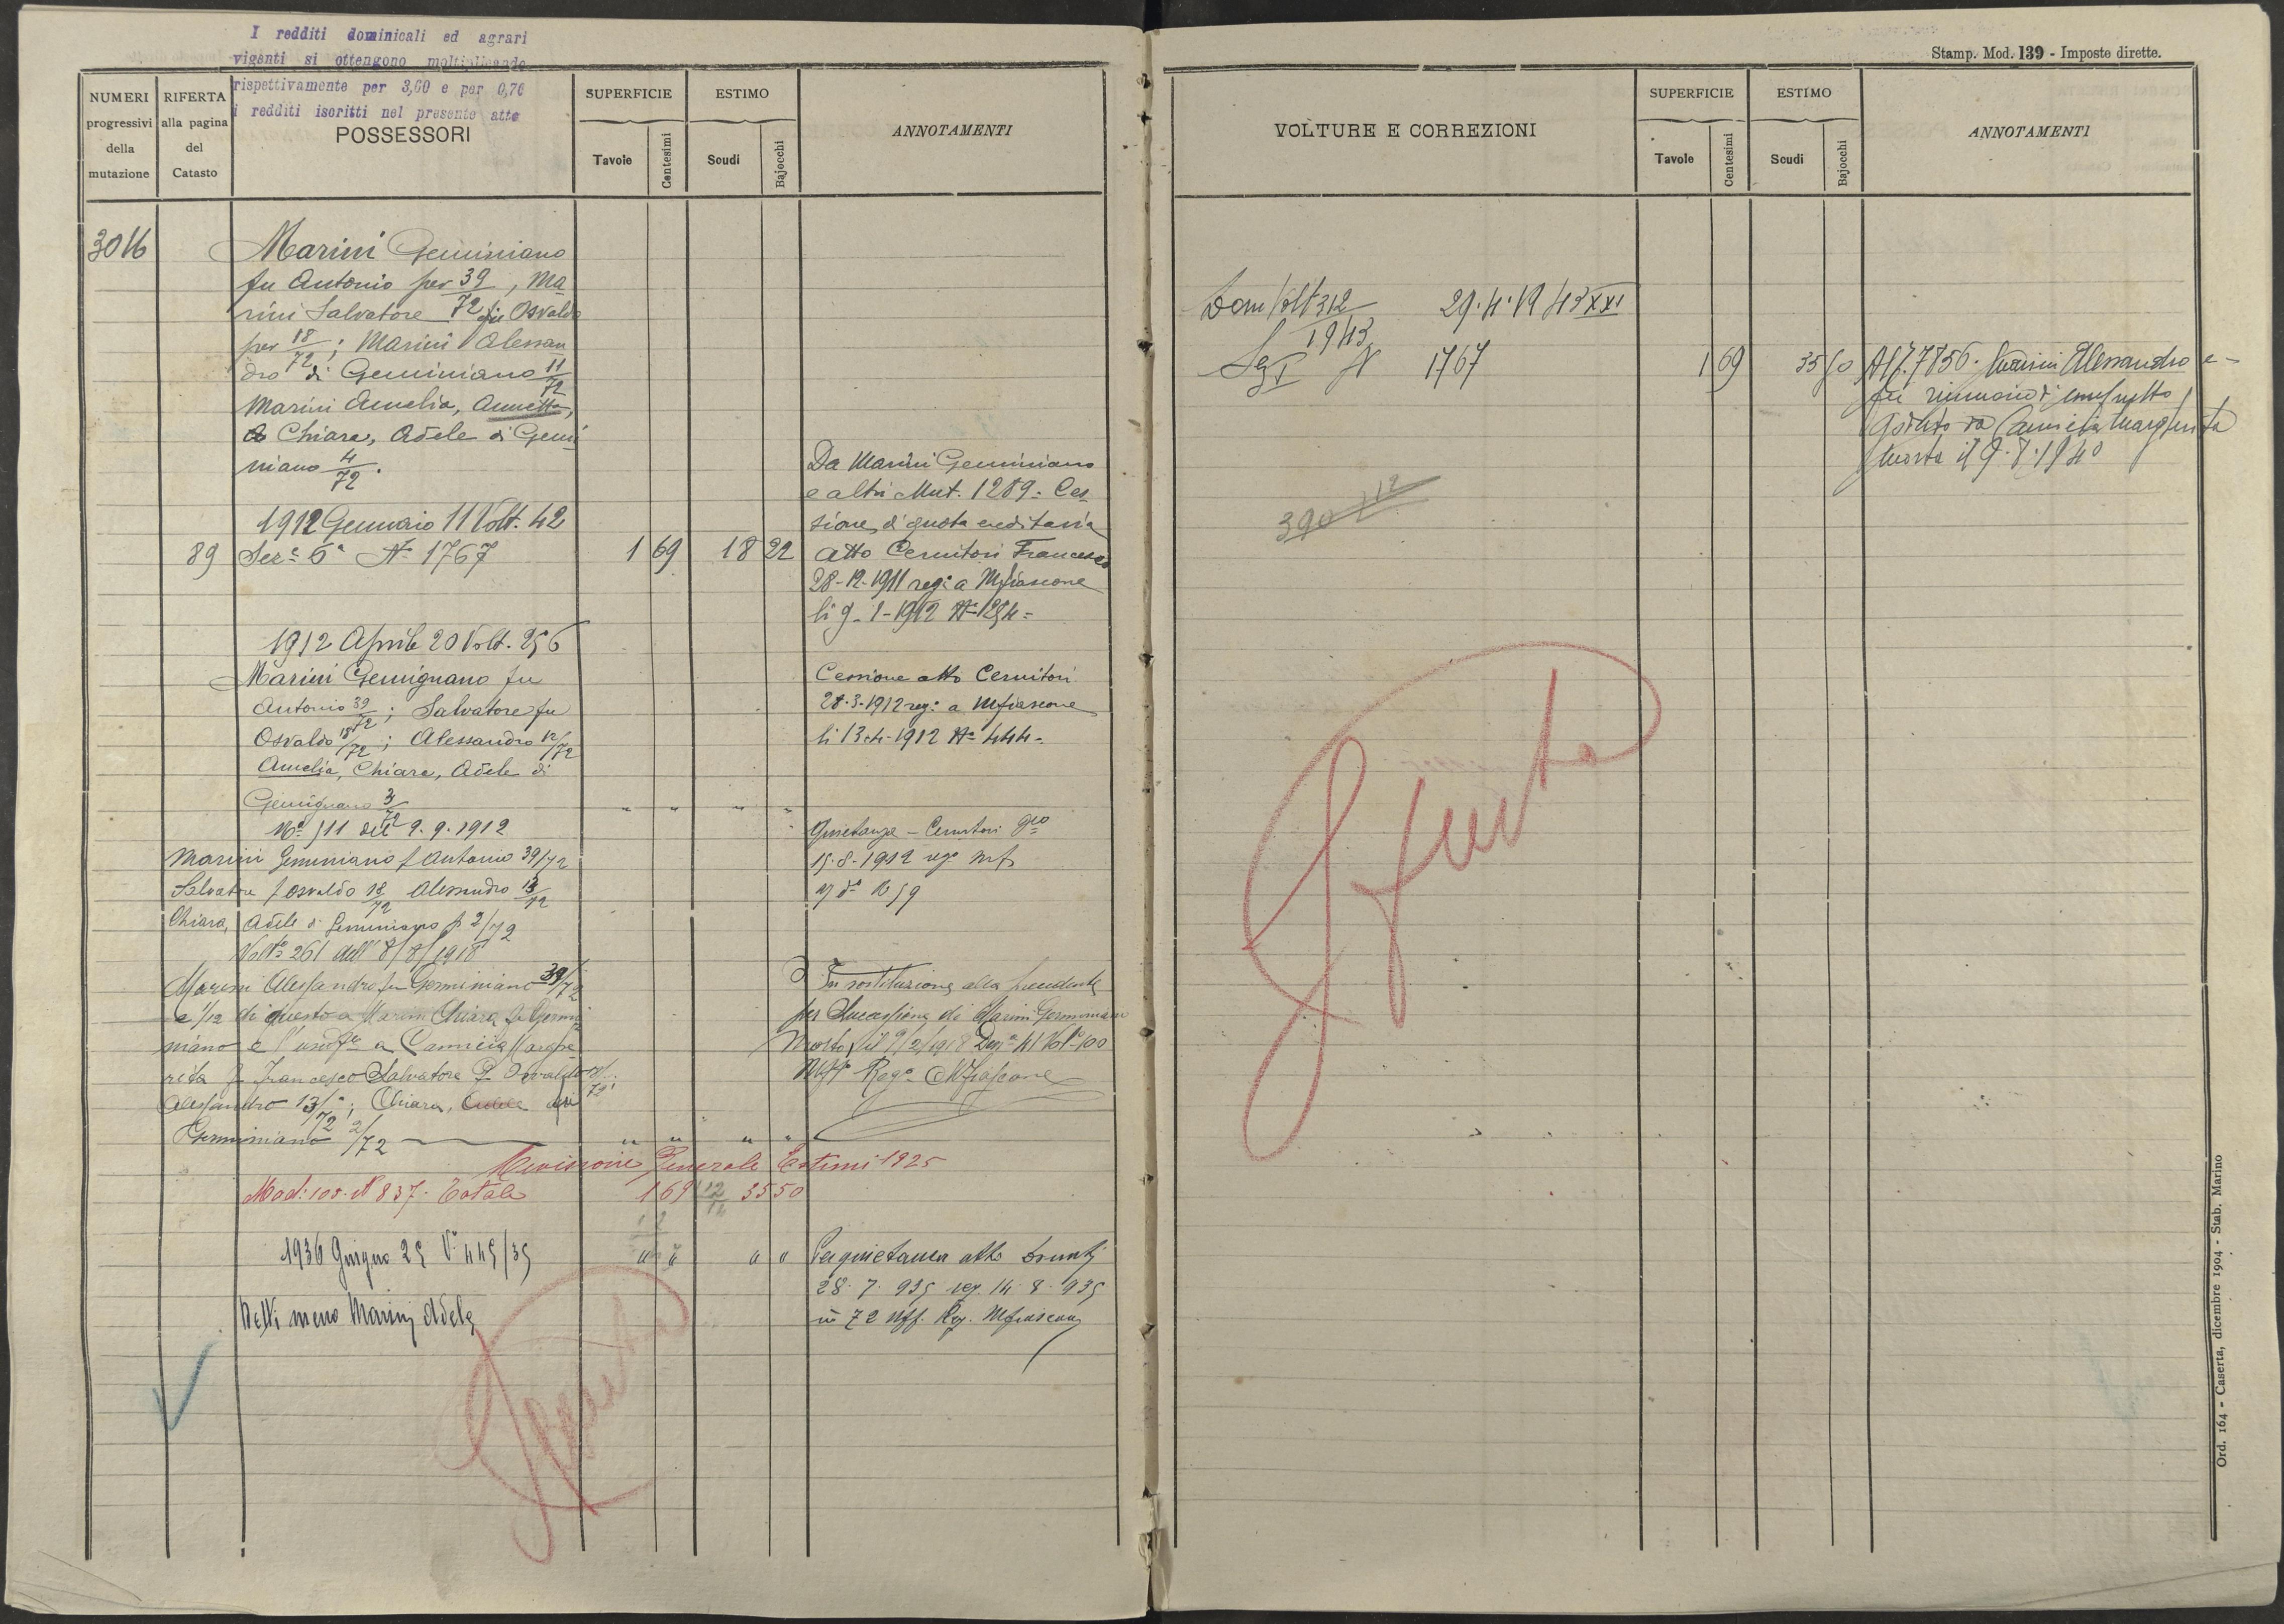 I redditi dominicali ed agrari
vigenti si ottengono moltiplicando
rispettivamente per 3,60 e per 0,76
i redditi iscritti nel presente atto
NUMERI progressivi della mutazione
RIFERTA alla pagina del Catasto
POSSESSORI
SUPERFICIE
Tavole
Centesimi
ESTIMO
Scudi
Bajocchi
ANNOTAMENTI
3016
Marini Geminiano
fu Antonio per 39/72, Ma
rini Salvatore fu Osvaldo
per 18/72; Marini Alessan
dro di Geminiano 11/72
Marini Amelia, Annetta,
Chiara, Adele di Gemi
niano 4/72.
1912 Gennaio 11 Volt. 42
89 Sez.e 6a No 1767 1 69 18 22
Da Marini Geminiano
e altri Mut. 1289 = Ces
sione di quota ereditaria
atto Cernitori Francesco
28-12-1911 rega a Mfiascone
li 9-1-1912 No 1254 =
1912 Aprile 20 Volt. 256
Marini Gemignano fu
Antonio 39/72; Salvatore fu
Osvaldo 18/72; Alessandro 12/72
Amelia, Chiara, Adele di
Gemignano 3/72 " " " "
Cessione atto Cernitori
28-3-1912 rega a Mfiascone
li 13-4-1912 No 444 =
No 511 del 9.9.1912
Marini Geminiano f Antonio 39/72
Salvatore f Osvaldo 18/72 Alessandro 13/72
Chiara, Adele di Geminiano p 2/72
Quietanza - Cernitori
15-8-1912 rega Mfs
Volta 261 dell' 8/8/1918
Marini Alessandro fu Geminiano 39/72
e 1/12 di questo a Marini Chiara fu Gemi
niano e l'usofto a Camicia Marghe
rita f Francesco Salvatore f Osvaldo
Alessandro 13/72; Chiara, Adele
Geminiano 2/72 " " " "
In sostituzione alla precedente
per Successione di Marini Geminiano
morto il 9/2/1918 Den.a 41 Vol. 100
Uff. Rego Mfiascone
Revisione Generale Estimi 1925
Mod. 105. N 837. Totale 1 69 12/12 35 50
1936 Giugno 25 Vo 445/35 " " " "
Delli meno Marini Adele
Per quietanza atto
28.7.935 reg. 14.8.935
n 72 Uff. Reg. Mfiascone
Stamp. Mod. 139 - Imposte dirette.
VOLTURE E CORREZIONI
SUPERFICIE
Tavole
Centesimi
ESTIMO
Scudi
Bajocchi
ANNOTAMENTI
Dom Volt 312/1943 29.4.1943 XXI
Sez I N 1767 1 69 35 50
7856. Marini Alessandro e
per riunione d'usufrutto
goduto da Camicia Margherita
morta il 9.8.1940
390 312
Ord. 164 - Caserta, dicembre 1904 - Stab. Marino